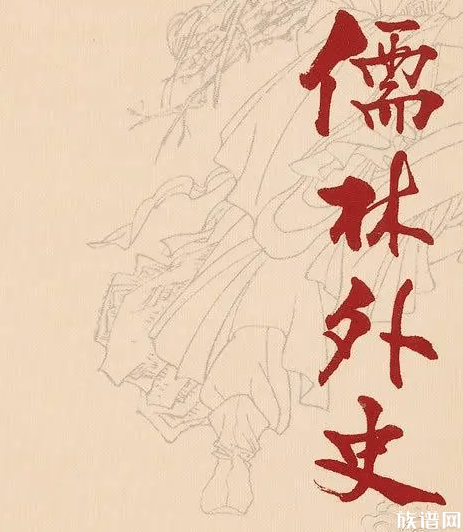 儒林外史
族谱网